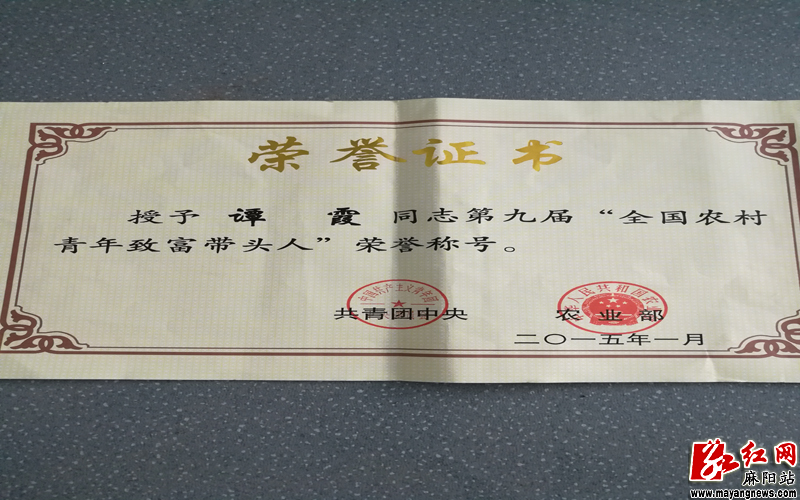 荣誉证书
授予 谭 霞 同志第九届“全国农村
青年致富带头人”荣誉称号。
中国共产主义青年团
华人民共和国农业
共青团中央 农业部
二〇一五年一月
红网
麻阳站
www.mayangnews.com